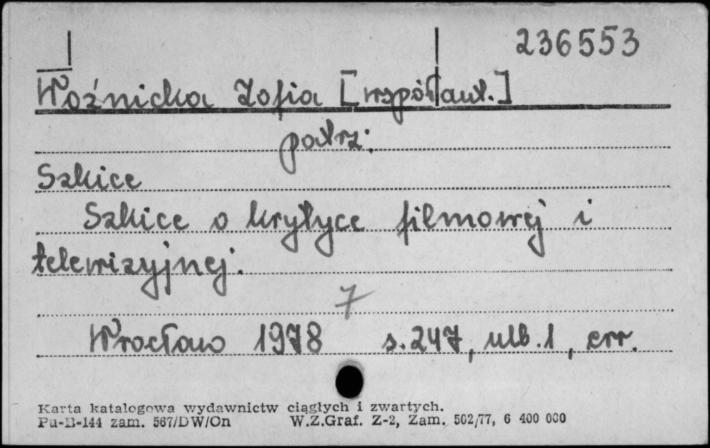 236553
Woźnicka Zofia [współaut.]
patrz:
Szkice
Szkice o krytyce filmowej i
telewizyjnej.
7
Wrocław 1978 s. 247, nlb. 1, err.
Karta katalogowa wydawnictw ciągłych i zwartych.
Pu-B-144 zam. 567/DW/On W.Z.Graf. Z-2, Zam. 502/77, 6 400 000